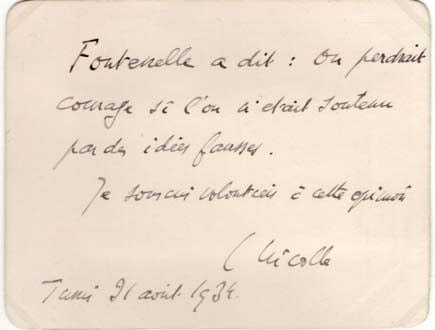 Fontenelle a dit : On perdrait
courage si l'on n'était soutenu
par des idées fausses.
Je souscris volontiers à cette opinion
C Nicolle
Tunis 21 août 1934.